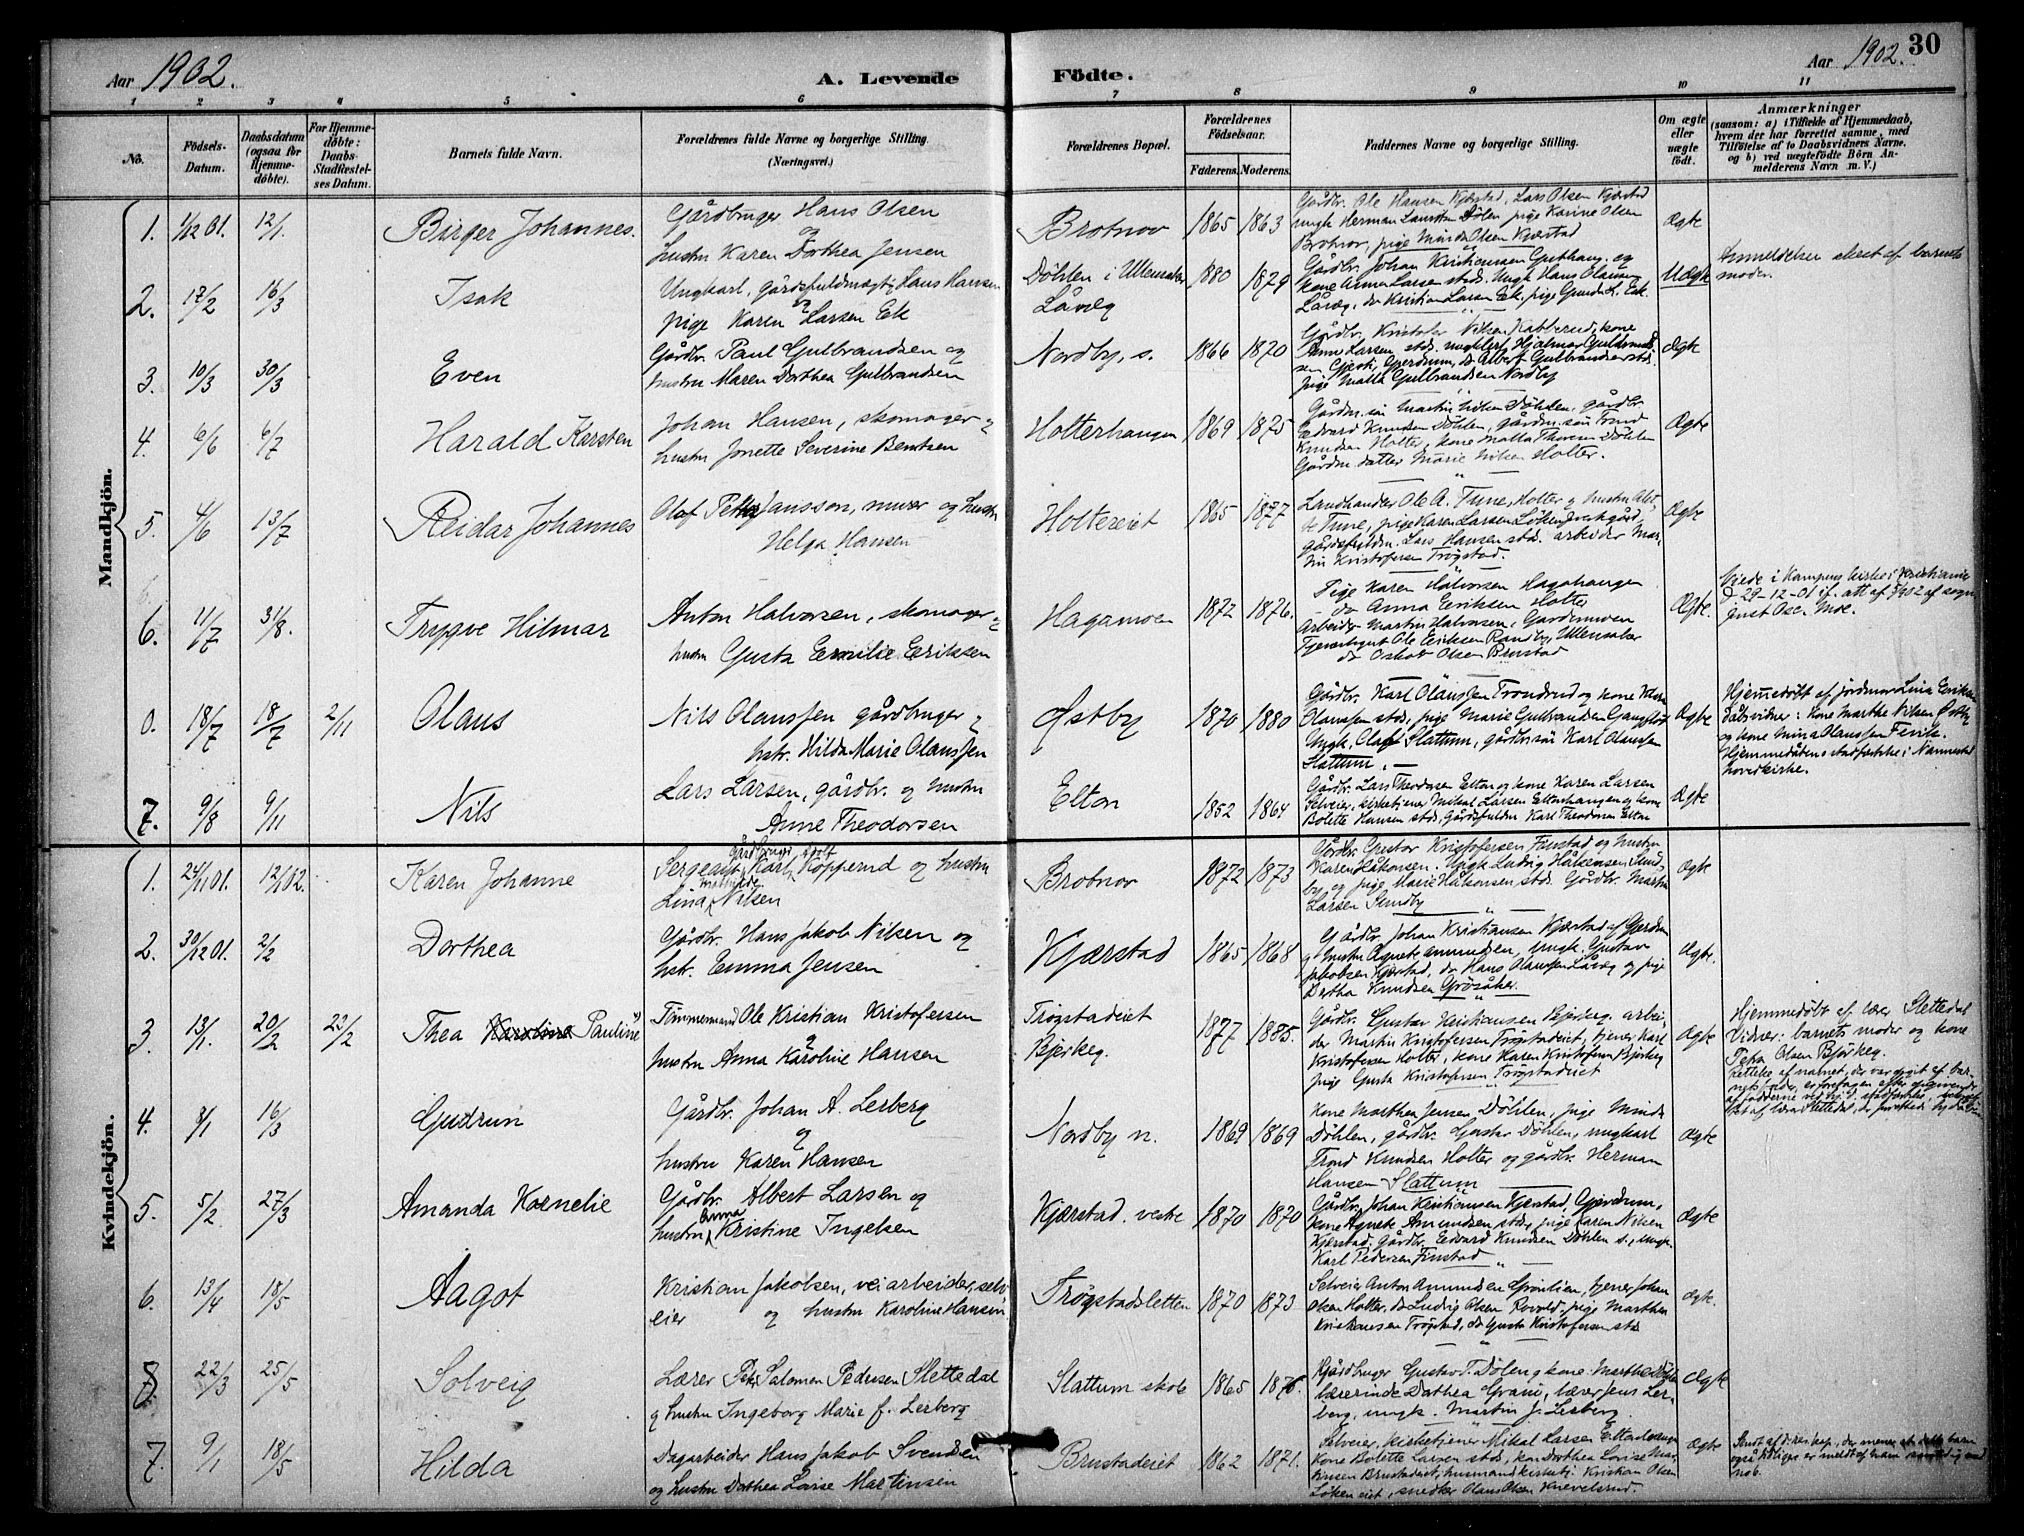 Aar 1902.
A. Levende
Födte.
Aar 1902.
30
1 2 3 4 5 6 7 8 9 10 11
No.
Födsels-
Datum.
Daabsdatum
(ogsaa for
Hjemme-
döbte).
For Hjemme-
döbte:
Daabs-
Stadfæstel-
ses Datum.
Barnets fulde Navn.
Forældrenes fulde Navne og borgerlige Stilling.
(Næringsvei.)
Forældrenes Bopæl.
Forældrenes
Födselsaar.
Faderens. Moderens.
Faddernes Navne og borgerlige Stilling.
Om ægte
eller
uægte
födt.
Anmærkninger
(saasom: a) i Tilfælde af Hjemmedaab,
hvem der har forrettet samme, med
Tilföielse af to Daabsvidners Navne.
og b) ved uægtefödte Börn An-
melderens Navn m. V.)
Mandkjön.
1. 1/12 01. 12/1. Birger Johannes.
Gårdbruger Hans Olsen
og
hustru Karen Dorthea Jensen
Brotnov 1865 1863
Gårdbr. Ole Hansen Kjærstad, Lars Olsen Kjærstad
ungk Herman Dølen pige Karine Olsen
Brotnov, pige Minda Olsen Kjærstad
Ægte
2. 17/2 16/3 Isak
Ungkarl, gårdsfuldmægt. Hans Hansen
og
pige Karen Larsen Eek
Döhlen i Ullensaker
Låveg
1880 1879
Gårdbr. Johan Kristiansen
kone Anna Larsen stds. Ungk Hans Olausen
Låveg, do Kristian Larsen Eek, pige Gunda L. Eek
Uægte
Anmeldelsen skeet af barnets
moder.
3. 10/3 30/3 Even
Gårdbr. Paul Gulbrandsen og
hustru Maren Dorthea Gulbrandsen
Nordby, s. 1866 1870
Gårdbr. Kristofer Nilsen Kabberud, kone
Anne Larsen stds. ungkarl Hjalmar
sen Gjerdrum, do Albert Gulbrandsen stds.
pige Matta Gulbrandsen Nordby
Ægte
4. 6/6 6/7 Harald Karsten
Johan Hansen, skomager &
hustru Jonette Severine Berntsen
Holterhaugen 1869 1875
Gårdm. sön Martin Nilsen Döhlen, gårdbr.
Edvard Knudsen Döhlen, gårdm. sön Trond
Knudsen Holter, kone Matta Thoresen Döhlen
Gårdm datter Marie Nilsen Holter.
Ægte
5. 4/6 13/7 Reidar Johannes
Olaf Petter Jansson, murer og hustru
Helga Hansen
Holtereiet 1865 1877
Landhandler Ole A. Tune, Holter og hustru
Tune, pige Karen Larsen Løken
gårdsfuldm. Lars Hansen stds. arbeider Mar-
tin Kristofersen Trøgstad.
Ægte
6. 11/7 31/8. Trygve Hilmar
Anton Halvorsen, skomager &
hustru Gusta Emilie Eriksen
Hagamoen 1872 1876.
Pige Karen Halvorsen Hagahaugen
do Anna Eriksen Holter
Arbeider Martin Halvorsen, Gardermoen
Ole Eriksen Randby, Ullensaker
do Oskar Olsen Brustad
Ægte.
Viede i Kampens kirke i Kristiania
29-12-01 if. att af 1902 af sogn.
prest Osc. Moe.
0. 18/7 18/7 2/11 Olaus
Nils Olaussen gårdbruger &
hstr. Hilda Marie Olaussen
Østby 1870 1880
Gårdbr. Karl Olaussen Trondrud og kone Klara
Olaussen stds, pige Marie Gulbrandsen
Ungk. Olaf Slattum, gårdbr. sön Karl Olaussen
Slattum.
Ægte
Hjemmedöbt af jordmor Lina Eriksen
Dåbsvidner: kone Marthe Nilsen Østby
og kone Mina Olaussen
Hjemmedåben stadfæstet i Nannestad
hovedkirke.
7. 9/8 9/11 Nils
Lars Larsen, gårdbr. og hustru
Anne Theodorsen
Elton 1852 1864
Gårdbr. Lars Theodorsen Elton og kone Karen Larsen
Selveier, kirketjener Mikal Larsen Eltonhaugen og kone
Bolette Hansen stds, Gårdsfuldm Karl Theodorsen Elton
Ægte
Kvindekjön.
1. 24/11 01. 12/1 02. Karen Johanne
Gårdbruger
Sergeant, Karl Köpperud og hustru
Mathilde
Lina Nilsen
Brotnov 1872 1873
Gårdbr. Gustav Kristofersen Finstad og hustru
Karen Håkonsen. Ungk Ludvig Håkonsen Sund-
by og pige Marie Håkonsen stds. Gårdbr. Martin
Larsen Sundby
Ægte
2. 30/12 01. 2/2 Dorthea
Gårdbr. Hans Jakob Nilsen og
hstr. Emma Jensen
Kjærstad 1865 1868
Gårdbr. Johan Kristiansen Kjærstad af Gjerdrum
og hustru Agnete Amundsen, ungk. Gustav
Jakobsen Kjærstad, do Hans Olaussen Låveg og pige
Dortha Knudsen
Ægte.
3. 13/1. 20/2 23/2 Thea Karoline Pauline
Tömmermand Ole Kristian Kristofersen
og
hustru Anna Karoline Hansen
Trøgstadeiet
Bjerkeg. 1877 1885.
Gårdbr. Gustav Kristiansen Bjerkeg. arbei-
der Martin Kristofersen Trøgstadeiet, tjener Karl
Kristofersen Holter, kone Karen Kristofersen Bjerkeg
pige Gusta Kristofersen Trøgstadeiet
Ægte
Hjemmedøbt af lærer Slettedal
Vidner: barnets moder og kone
Petra Olsen Bjerkeg.
4. 3/1 16/3 Gudrun
Gårdbr. Johan A. Lerberg
og
hustru Karen Hansen
Nordby n. 1869 1869
Kone Marthea Jensen Döhlen, pige Minda
Döhlen, gårdbr. Gustav Döhlen, ungkarl
Trond Knudsen Holter og gårdbr. Herman
Hansen Slattum
Ægte
5. 5/2 27/3 Amanda Kornelie
Gårdbr. Albert Larsen og
Anna
hustru Kristine Ingelsen
Kjærstad. vestre 1870 1870
Gårdbr. Johan Kristiansen Kjærstad, Gjerdrum,
kone Agnete Amundsen stds, pige Karen Nilsen
Kjærstad, gårdbr. Edvard Knudsen Döhlen s., ungk.
Karl Pedersen Finstad
Ægte
6. 13/4 18/5 Aagot
Kristian Jakobsen, veiarbeider, selv-
eier og hustru Karoline Hansen
Trøgstadsletten 1870 1873
Selveier Anton Amundsen Grønlien, tjener Johan
Olsen Holter, do Ludvig Olsen Rovold, pige Marthea
Kristiansen Trøgstad, do Gusta Kristofersen stds
Ægte.
8. 22/3 25/5 Solveig
Lærer Salomon Pedersen Slettedal
og hustru Ingeborg Marie f. Lerberg
Slattum skole 1865 1876.
Gårdbruger Gustav T. Dölen og kone Marthe Döhlen
lærerinde Dorthea Grani, lærer Jens Ler-
berg, ungk. Martin J. Lerberg.
Ægte
7. 9/1 18/5 Hilda
Dagarbeider Hans Jakob Svendsen
og hustru Dorthea Lovise Martinsen
Brustadeiet 1862 1871.
Selveier, kirketjener Mikal Larsen Eltonhaugen
Kone Bolette Larsen stds, kone Dorthea Lovise
Brustadeiet, husmand Kristian Olsen
Løkeneiet, snedker Olaus Olsen Knevelsrud.
Ægte